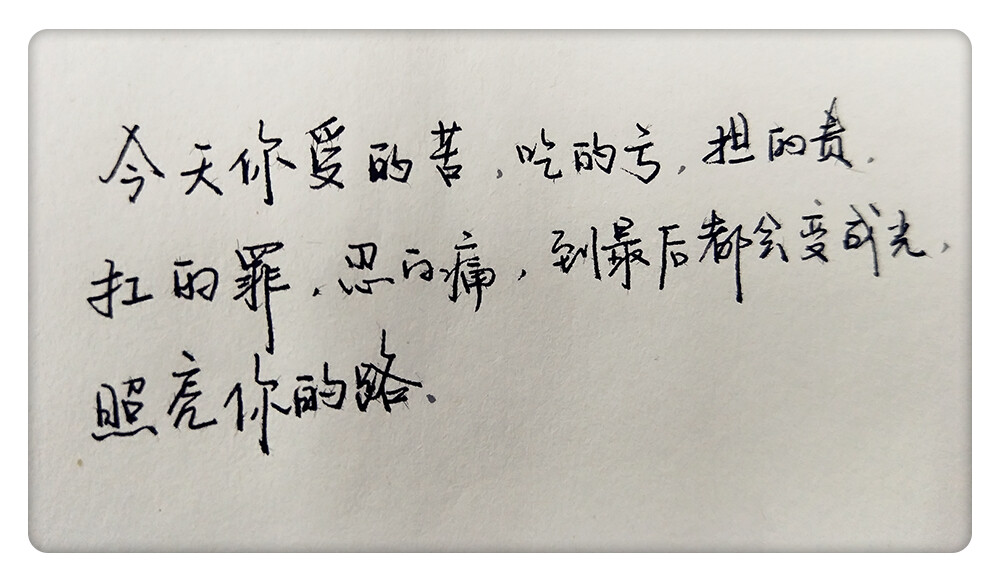 今天你受的苦,吃的亏,担的责,
扛的罪,忍的痛,到最后都会变成光,
照亮你的路、